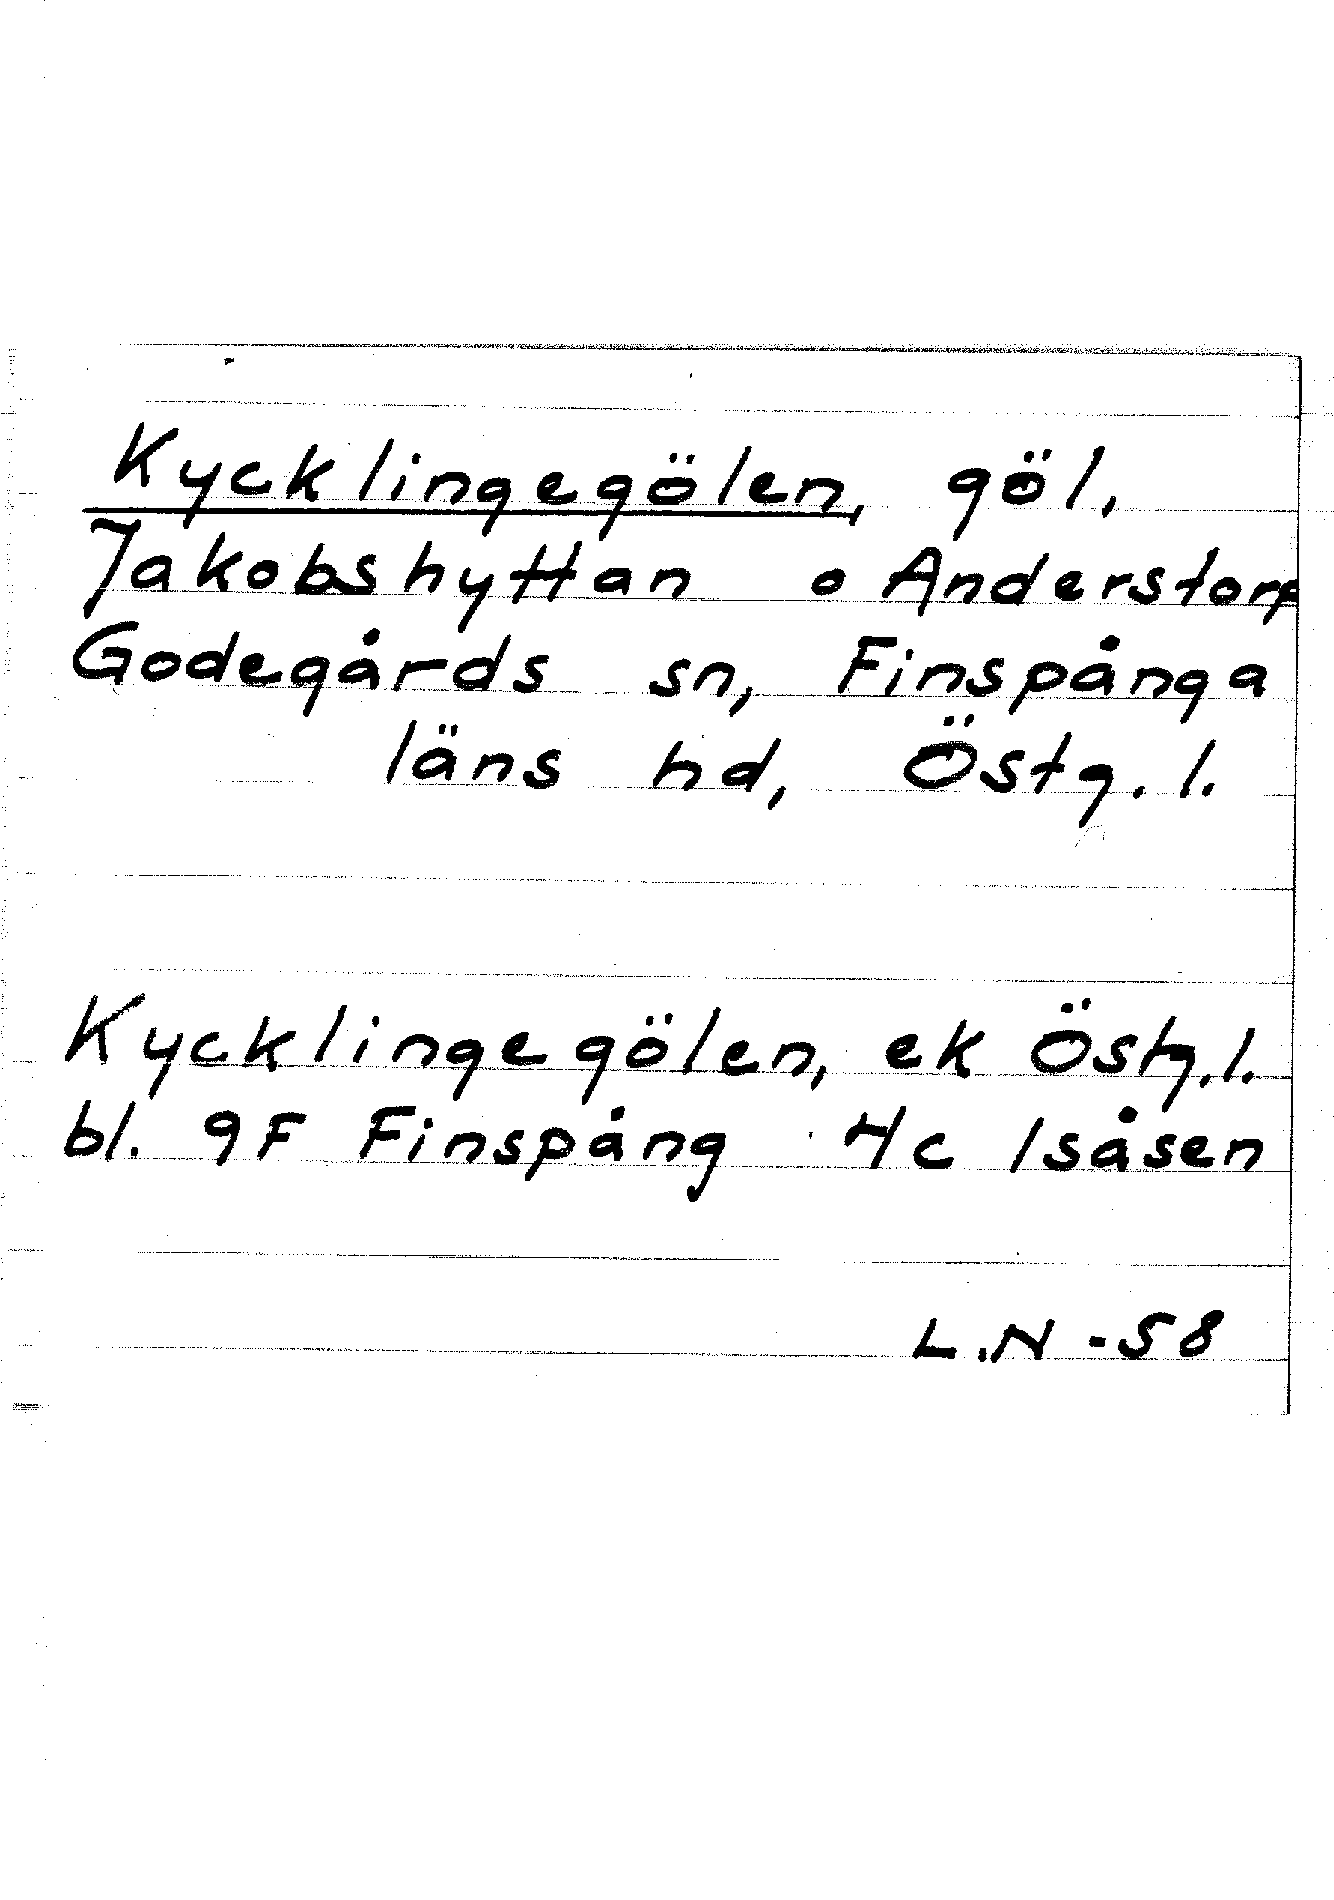 Kycklingegölen, göl,
Jakobshyttan o Anderstorp
Godegårds sn, Finspånga
läns hd, Östg. l.
Kycklingegölen, ek Östg. l.
bl. 9F Finspång 4c Isåsen
L.N -58